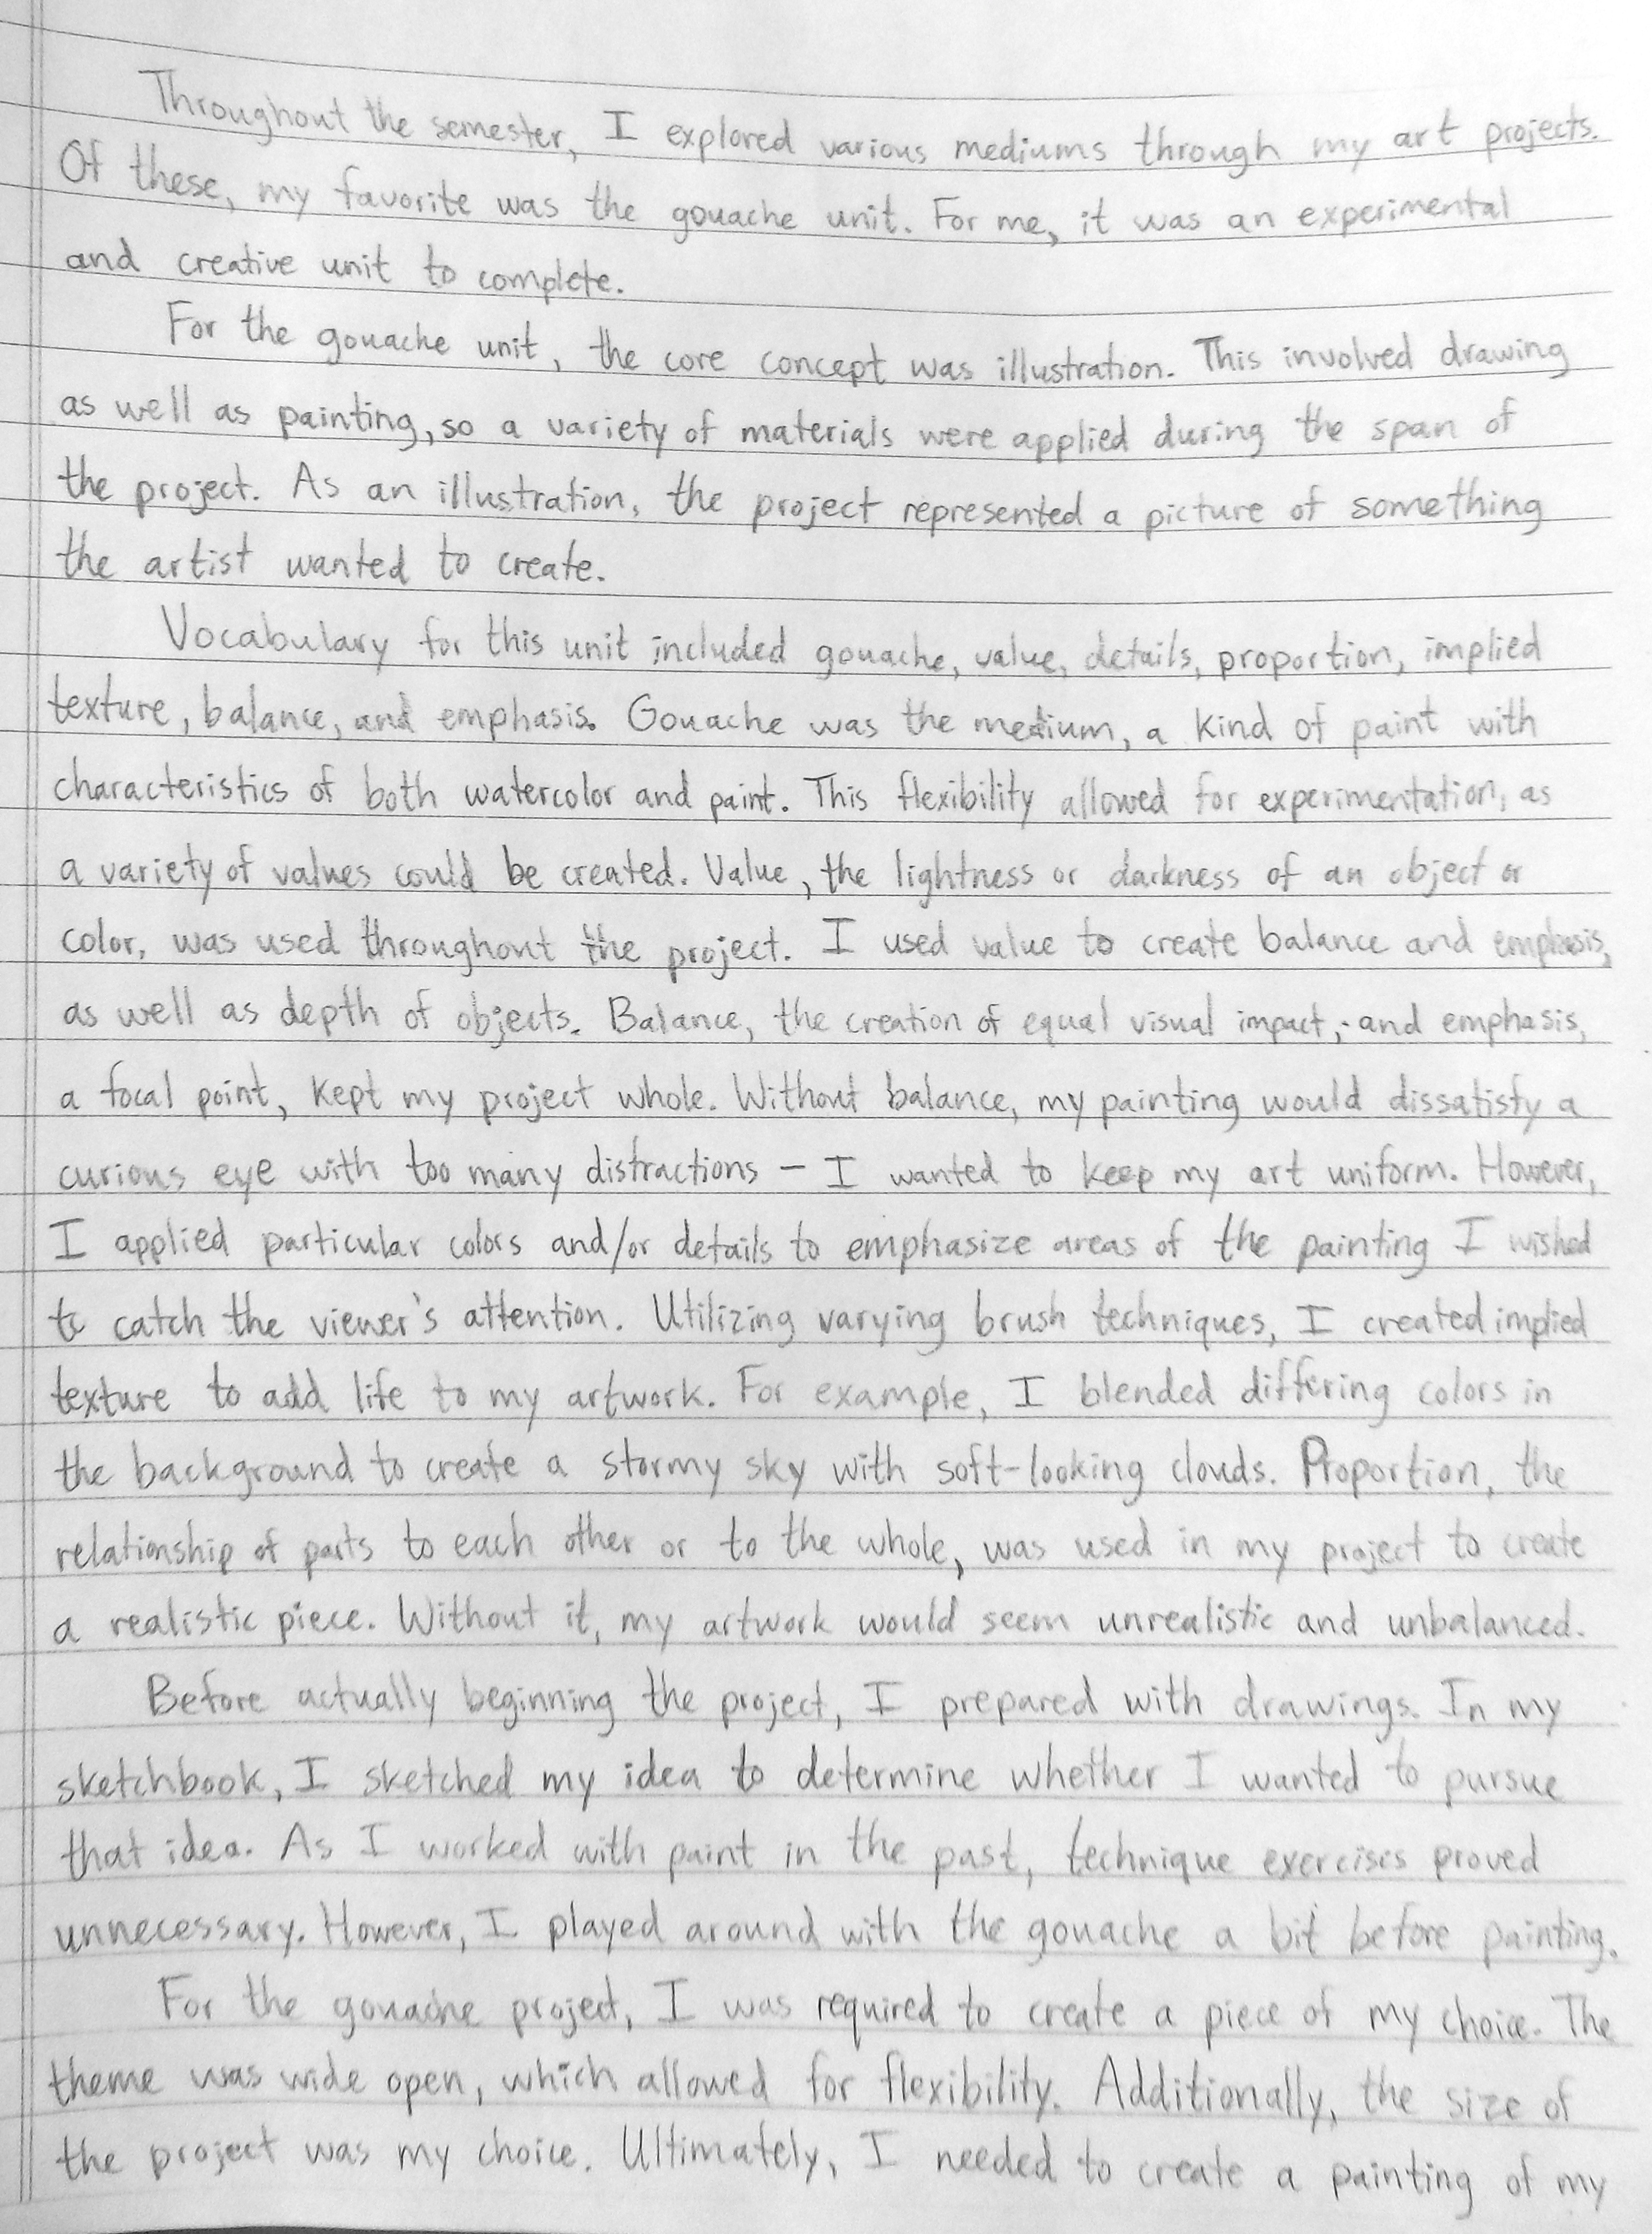 Throughout the semester, I explored various mediums through my art projects.
Of these, my favorite was the gouache unit. For me, it was an experimental
and creative unit to complete.
For the gouache unit, the core concept was illustration. This involved drawing
as well as painting, so a variety of materials were applied during the span of
the project. As an illustration, the project represented a picture of something
the artist wanted to create.
Vocabulary for this unit included gouache, value, details, proportion, implied
texture, balance, and emphasis. Gouache was the medium, a kind of paint with
characteristics of both watercolor and paint. This flexibility allowed for experimentation, as
a variety of values could be created. Value, the lightness or darkness of an object or
color, was used throughout the project. I used value to create balance and emphasis,
as well as depth of objects. Balance, the creation of equal visual impact, and emphasis,
a focal point, kept my project whole. Without balance, my painting would dissatisfy a
curious eye with too many distractions – I wanted to keep my art uniform. However,
I applied particular colors and/or details to emphasize areas of the painting I wished
to catch the viewer's attention. Utilizing varying brush techniques, I created implied
texture to add life to my artwork. For example, I blended differing colors in
the background to create a stormy sky with soft-looking clouds. Proportion, the
relationship of parts to each other or to the whole, was used in my project to create
a realistic piece. Without it, my artwork would seem unrealistic and unbalanced.
Before actually beginning the project, I prepared with drawings. In my
sketchbook, I sketched my idea to determine whether I wanted to pursue
that idea. As I worked with paint in the past, technique exercises proved
unnecessary. However, I played around with the gouache a bit before painting.
For the gouache project, I was required to create a piece of my choice. The
theme was wide open, which allowed for flexibility. Additionally, the size of
the project was my choice. Ultimately, I needed to create a painting of my